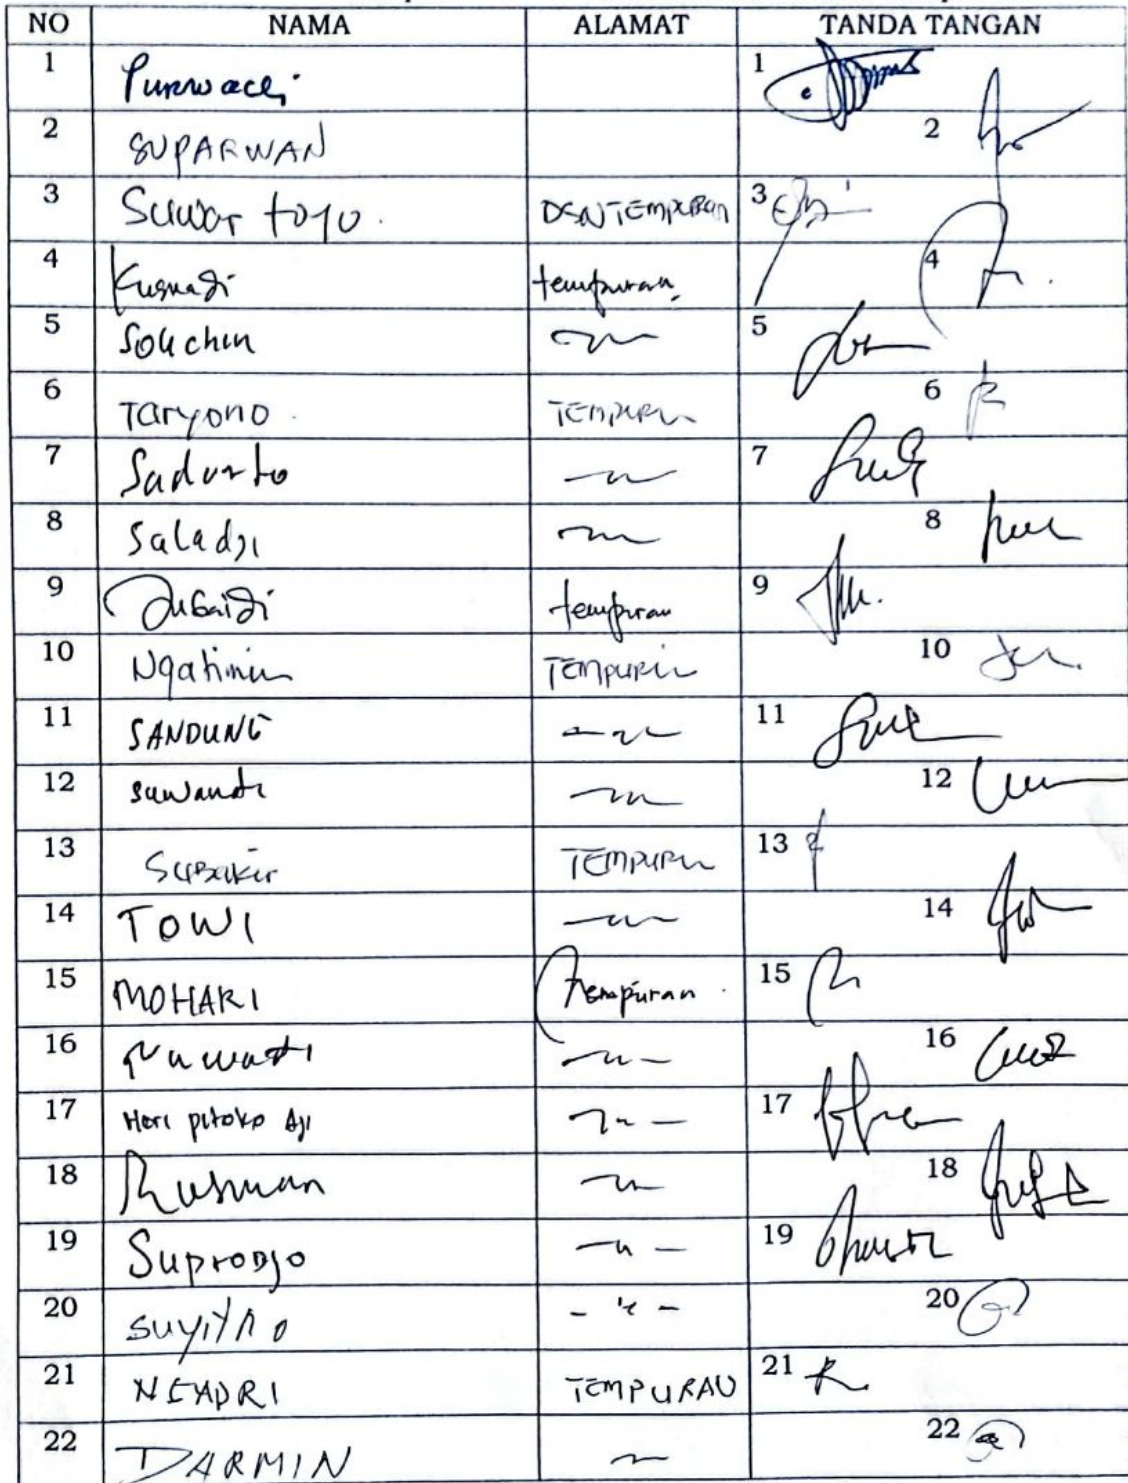 NO NAMA ALAMAT TANDA TANGAN
1 Purwadi 1
2 SUPARWAN 2
3 Suwar toyo. DSN TEMPURAN 3
4 Kusnadi tempuran 4
5 Solichin 5
6 Taryono. TEMPURAN 6
7 Sadarto 7
8 Saladji 8
9 Jubaidi tempuran 9
10 Ngatimin TEMPURAN 10
11 SANDUNG 11
12 suwandi 12
13 Subakir TEMPURAN 13
14 TOWI 14
15 MOHARI Tempuran. 15
16 16
17 Heri pitoko Aji 17
18 Rusman 18
19 Suprodjo 19
20 suyitno 20
21 TEMPURAN 21
22 DARMIN 22